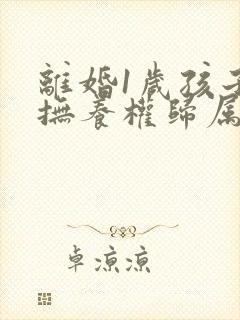 離婚1歲孩子
撫養權歸屬
卓涼涼